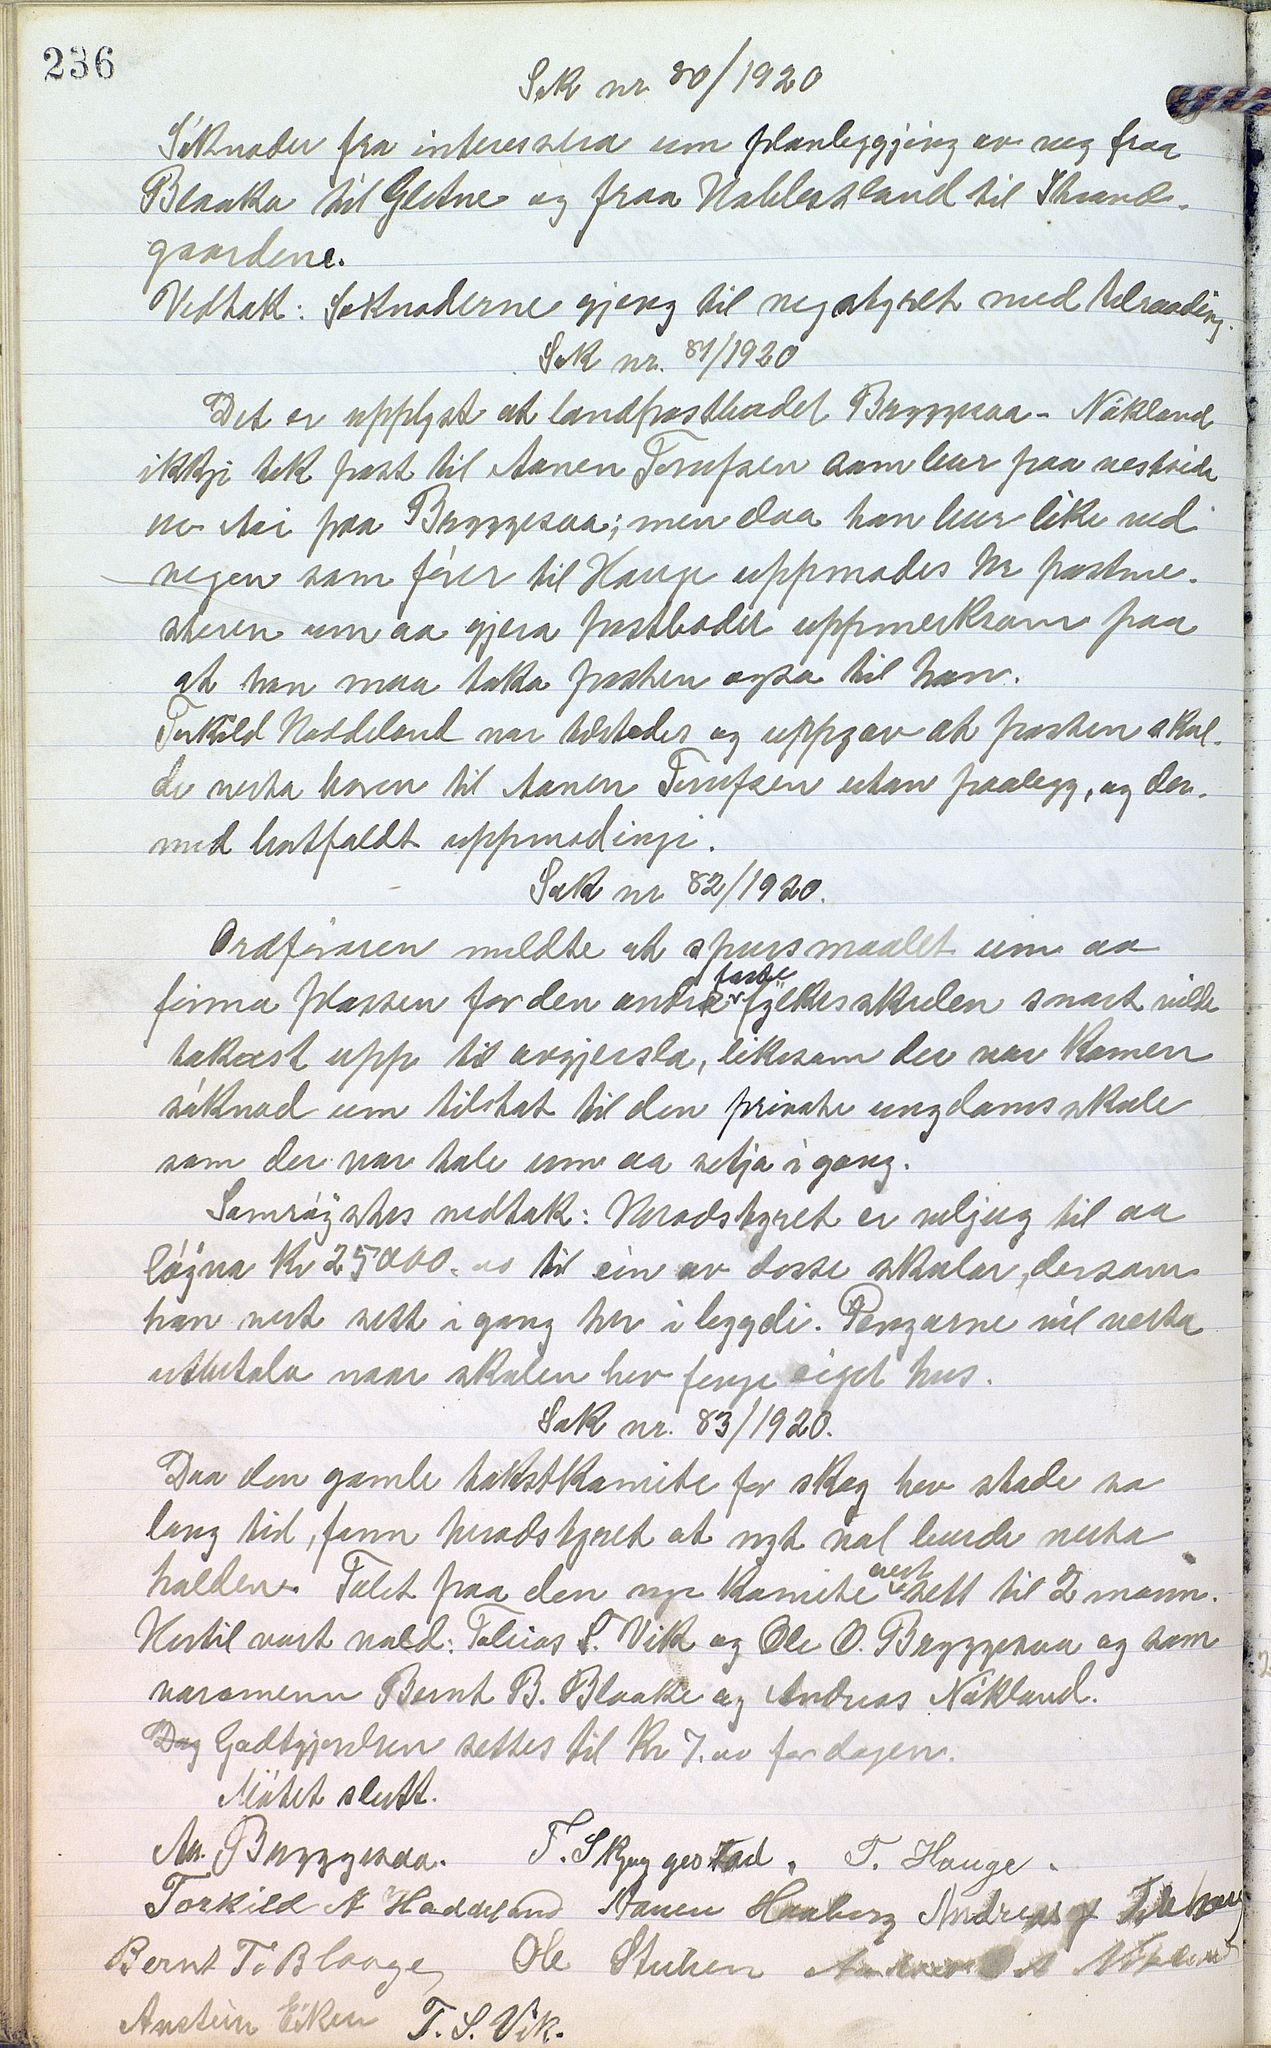 236
Sak nr. 80/1920
Söknader fra interessera um planleggjing av veg fraa
Blaaka til Gletne og fraa Kabblesland til Strand-
gaardene.
Vedtak: Söknaderne gjeng til vegstyret med tilraading.
Sak nr. 81/1920
Det er upplyst at landpostbodet Bryggesaa - Nökland
ikkje tek post til Aanen Torufsen som bur paa vestsida
av Aai paa Bryggesaa; men daa han bur like ved
vegen som fører til Hauge uppmodes hr postme-
steren um aa gjera postbodet uppmerksam paa
at han maa taka posten ogsa til han.
Torkild Haddeland var tilstades og uppgav at posten skul-
de verta boren til Aanen Torufsen utan paalegg, og der-
med bortfaldt uppmodingi.
Sak nr 82/1920.
Ordføraren meldte at spursmaalet um aa
finna plassen for den andre faste fylkesskulen snart vilde
takast upp til avgjersla, likesom der var komen
söknad um tilskot til den private ungdomsskule
som der var tale um aa setja i gang.
Samröystes vedtak: Heradstyret er viljug til aa
löyva Kr 25000.00 til ein av desse skular, dersom
han vert sett i gang her i bygdi. Pengarne vil verta
utbetala naar skulen hev fenge eiget hus.
Sak nr. 83/1920.
Daa den gamle takstkomite for skog hev stade so
lang tid, fann heradstyret at nyt val burde verta
halden. Talet paa den nye komite vert sett til 2 mann.
Hertil vart vald: Tobias S. Vik og Ole O. Bryggesaa og som
varamenn Bernt B. Blaake og Andreas Nökland.
Dag Godtgjerelsen settes til Kr 7.00 for dagen.
Mötet slutt.
An. Bryggesaa. T. Skjeggestad. T. Hauge.
Torkild N Haddeland Aanen Haaberg Andreas
Bernt T. Blaage, Ole Stuhen
Anstein Eiken T. S. Vik.